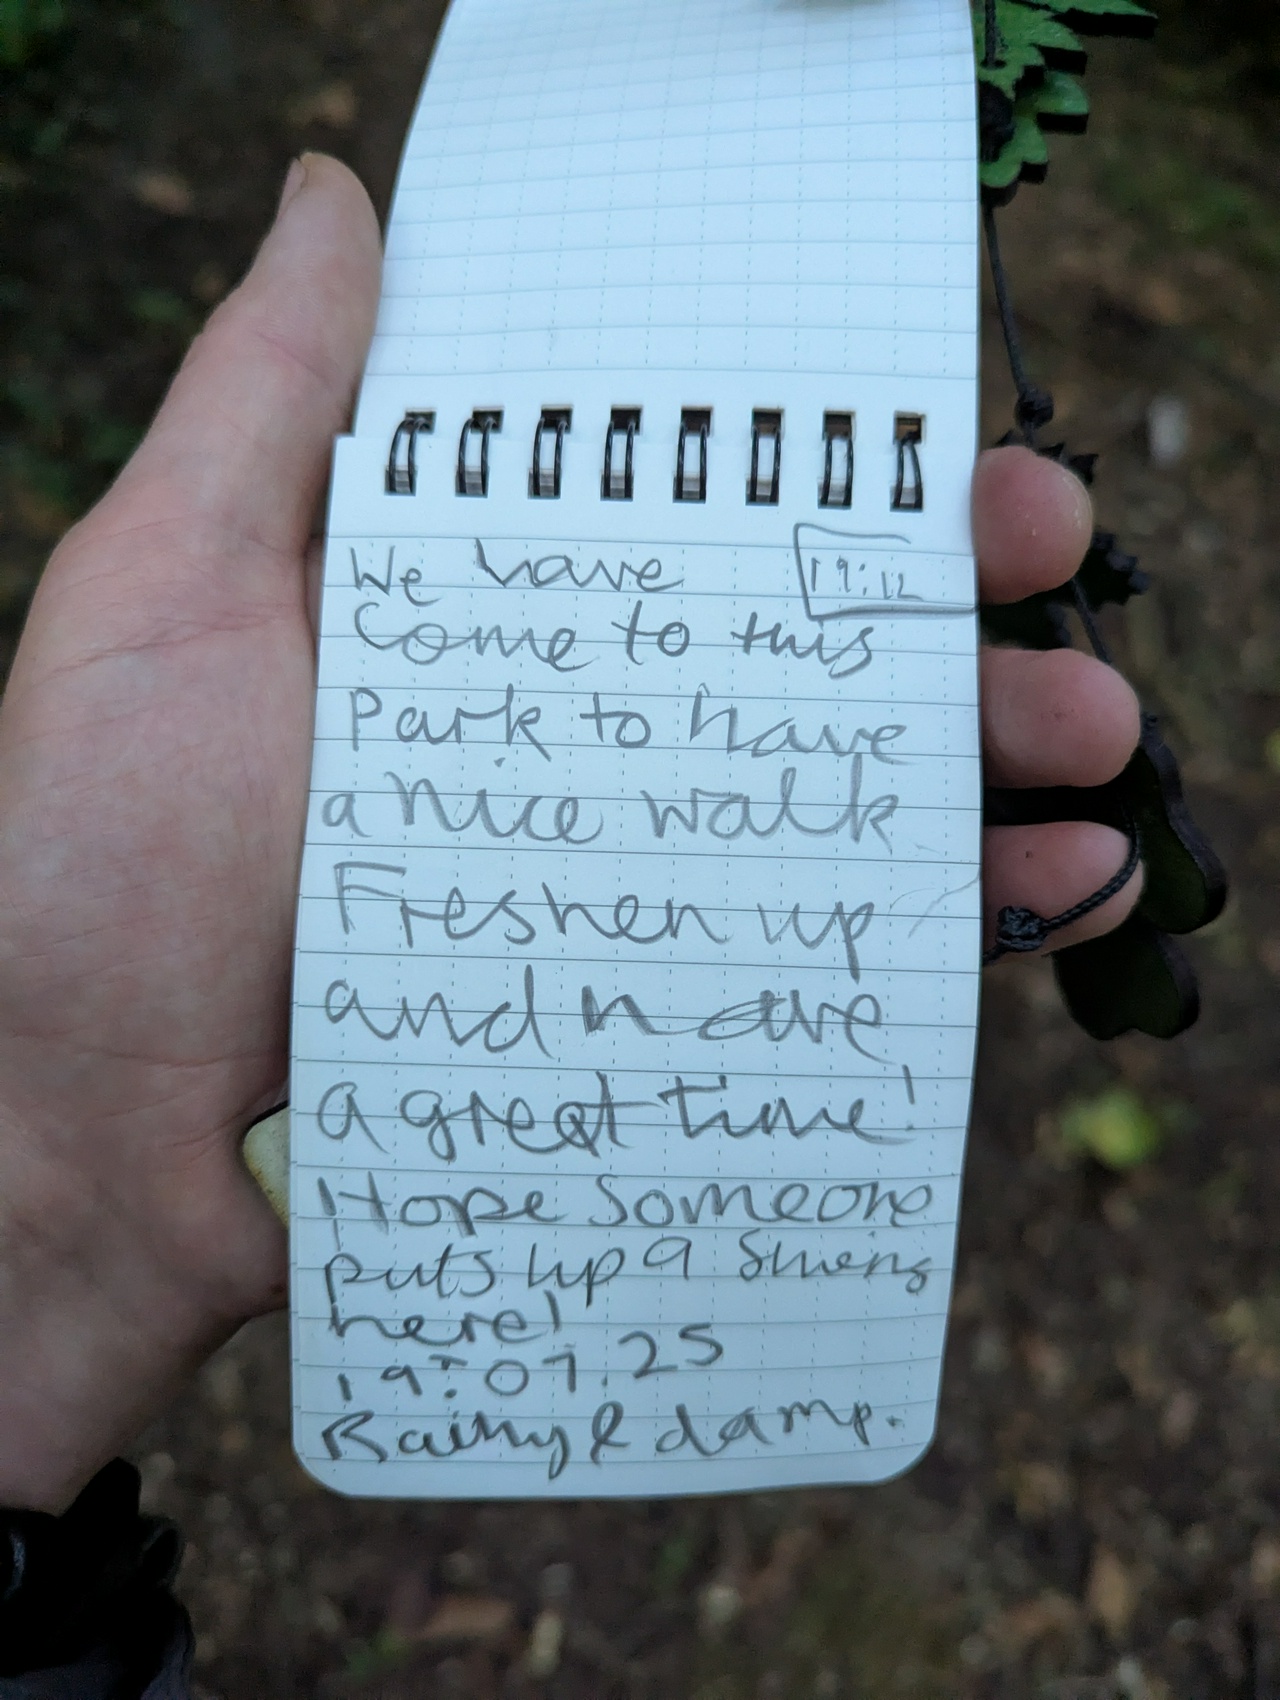 We have 19:12
Come to this
Park to have
a nice walk
Freshen up
and have
a great time!
Hope Someone
puts up a Swing
here!
19.07.25
Rainy & damp.